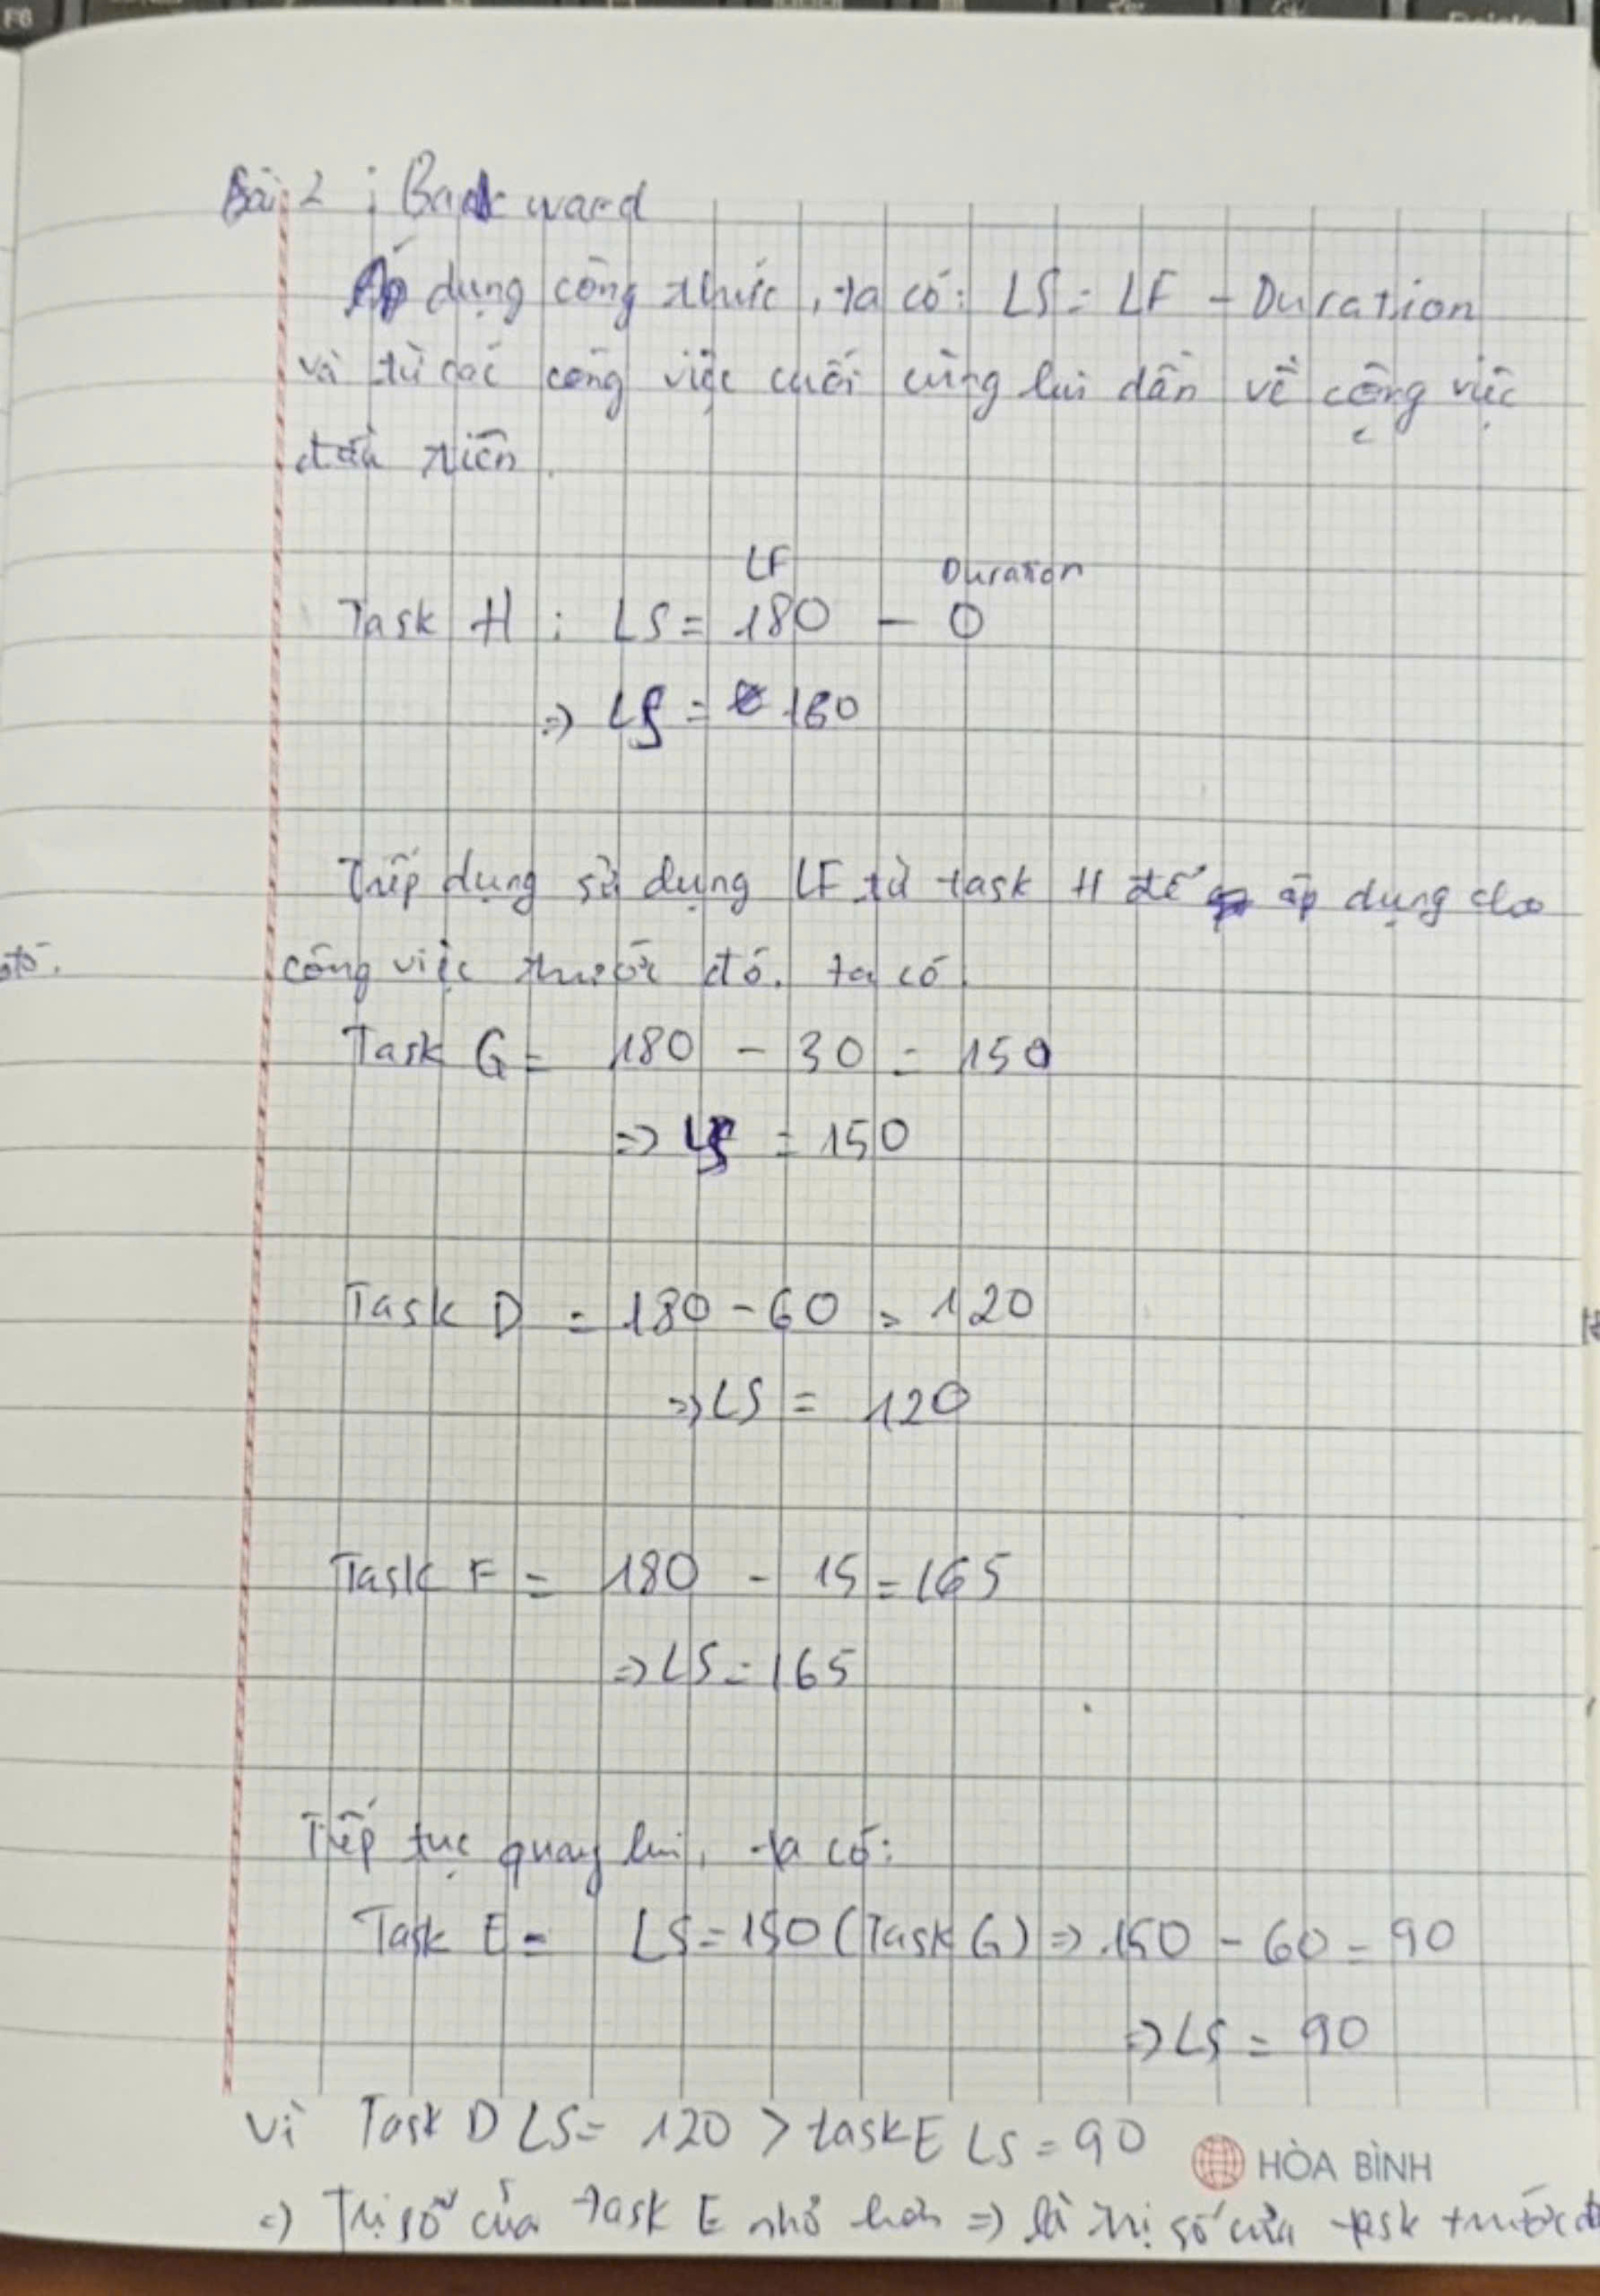 F8
Delete
Bài 2 : Backward
Áp dụng công thức, ta có: LS = LF - Duration
và từ các công việc cuối cùng lùi dần về công việc
đầu tiên.
LF Duration
Task H : LS = 180 - 0
=> LS = 180
Tiếp dụng sử dụng LF từ task H để áp dụng cho
công việc trước đó. ta có
Task G = 180 - 30 = 150
=> LS = 150
Task D = 180 - 60 = 120
=> LS = 120
Task F = 180 - 15 = 165
=> LS = 165
Tiếp tục quay lui, ta có:
Task E = LS = 150 (Task G) => 150 - 60 = 90
=> LS = 90
Vì Task D LS = 120 > task E LS = 90
HÒA BÌNH
=> Trị số của task E nhỏ hơn => là trị số của task trước